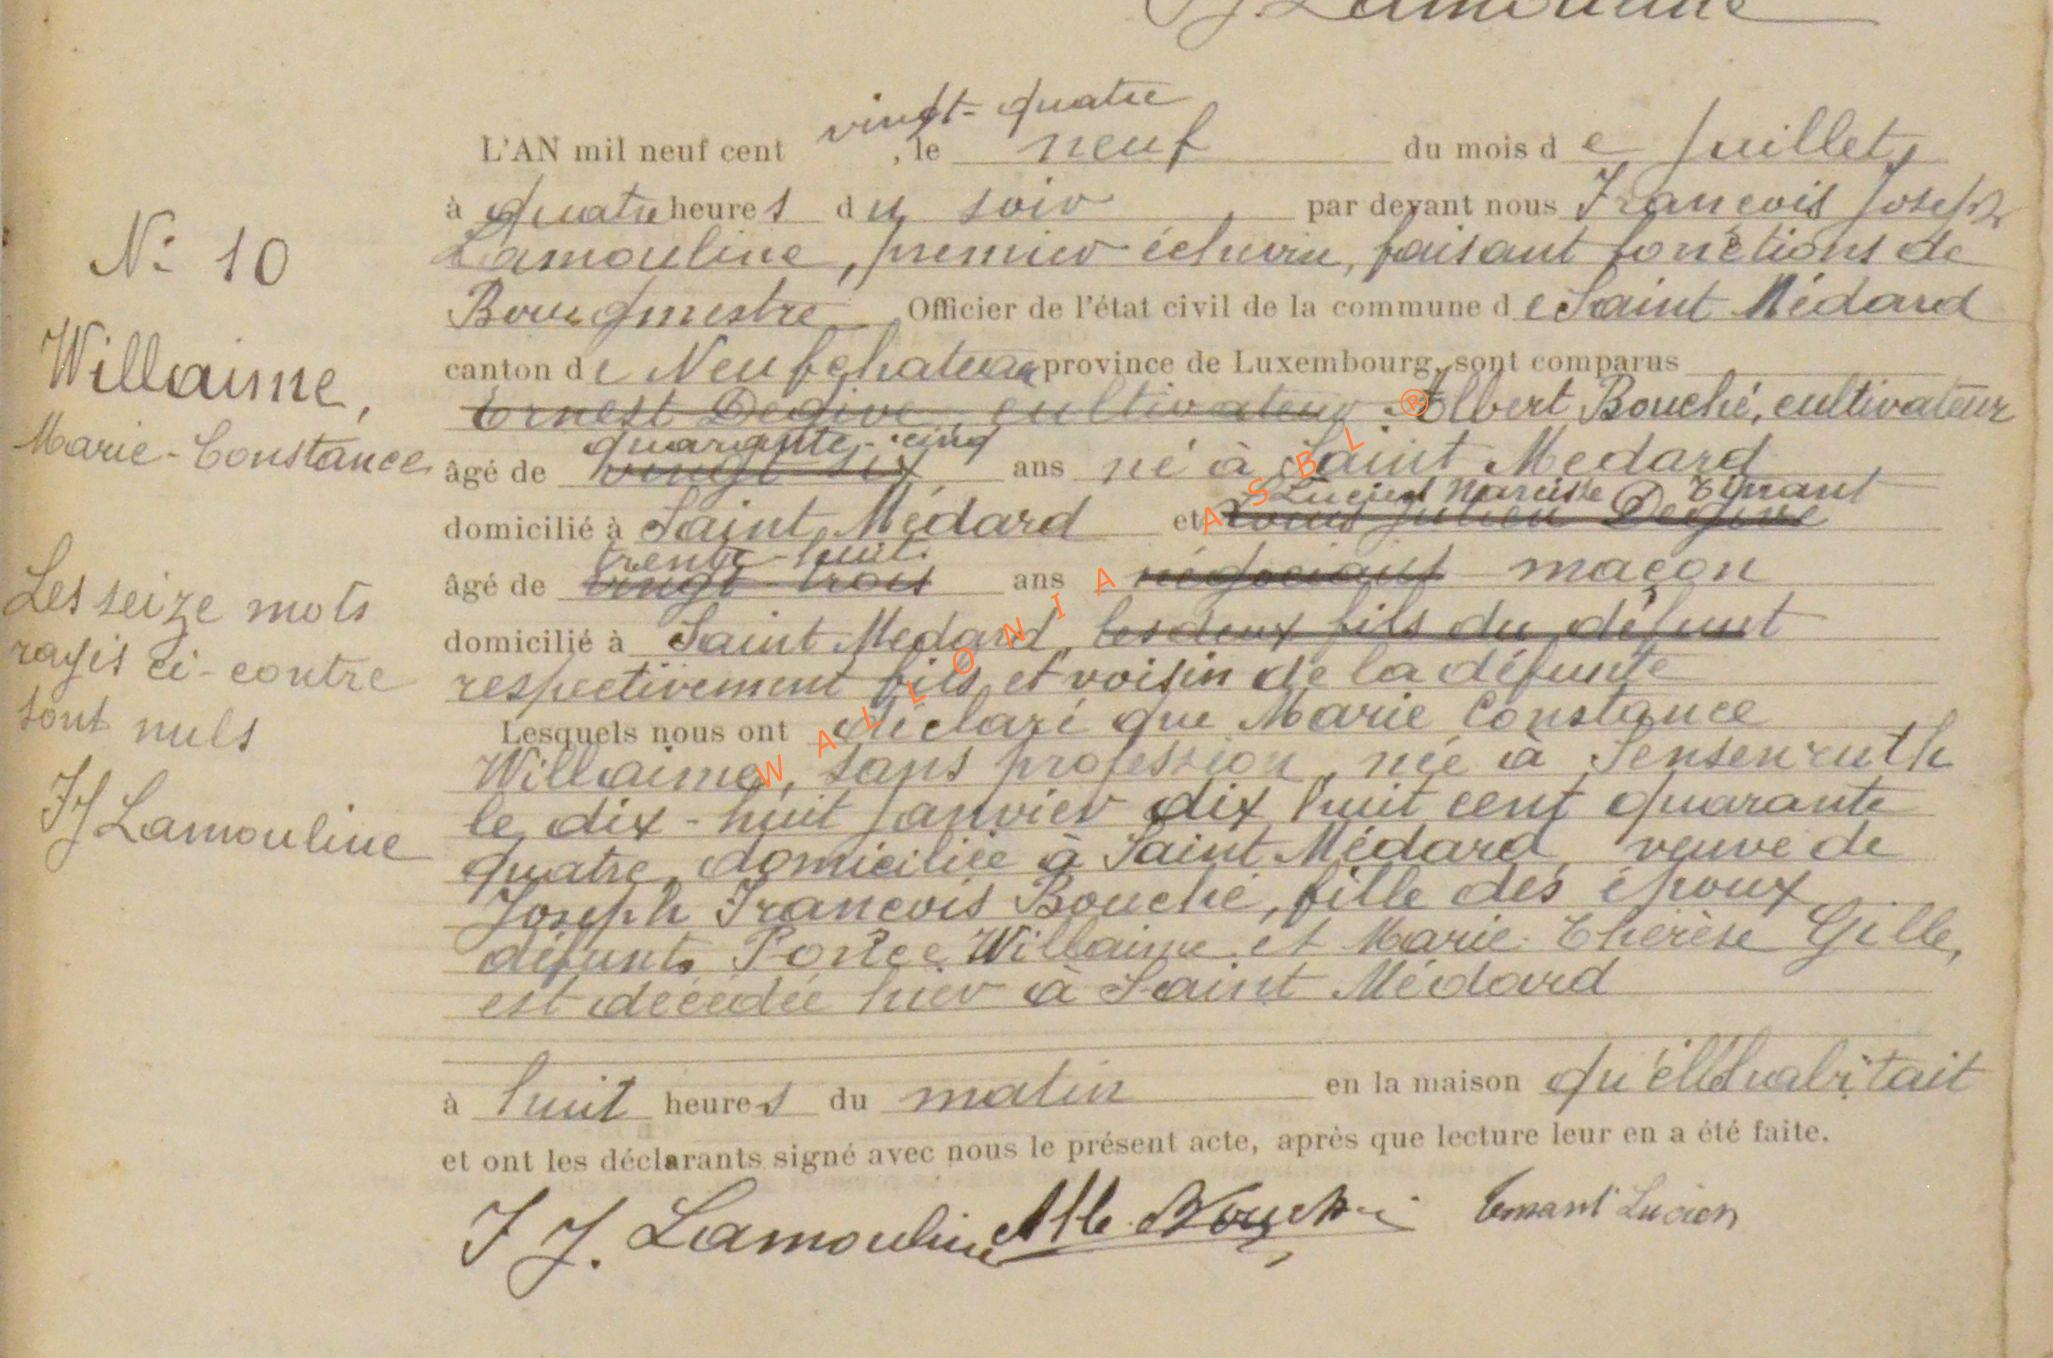 FJ. Lamouline
vingt-quatre
L'AN mil neuf cent , le neuf du mois de Juillet,
à quatre heures du soir, par devant nous François Joseph
Lamouline, premier échevin, faisant fonctions de
Bourgmestre Officier de l'état civil de la commune de Saint Médard
canton de Neufchateau province de Luxembourg, sont comparus
Ernest Degive cultivateur Albert Bouché, cultivateur
quarante-cinq
âgé de vingt six ans né à Saint Medard,
Lucien Narcisse Tinant
domicilié à Saint Médard et Louis Julien Degive
trente-huit
âgé de vingt trois ans négociant maçon
domicilié à Saint Medard, les deux fils du défunt
respectivement fils et voisin de la défunte
Lesquels nous ont déclaré que Marie Constance
Willaime, sans profession, née à Sensenruth
le dix-huit Janvier dix huit cent quarante
quatre, domiciliée à Saint Médard, veuve de
Joseph François Bouché, fille des époux
défunts Ponce Willaime et Marie-Thérèse Gille,
est décédée hier à Saint Médard
à huit heures du matin en la maison qu'elle habitait
et ont les déclarants signé avec nous le présent acte, après que lecture leur en a été faite.
F J. Lamouline Alb. Bouché Tinant Lucien
N° 10
Willaime,
Marie-Constance
Les seize mots
rayés ci-contre
sont nuls
FJ Lamouline
WALLONIA ASBL ®